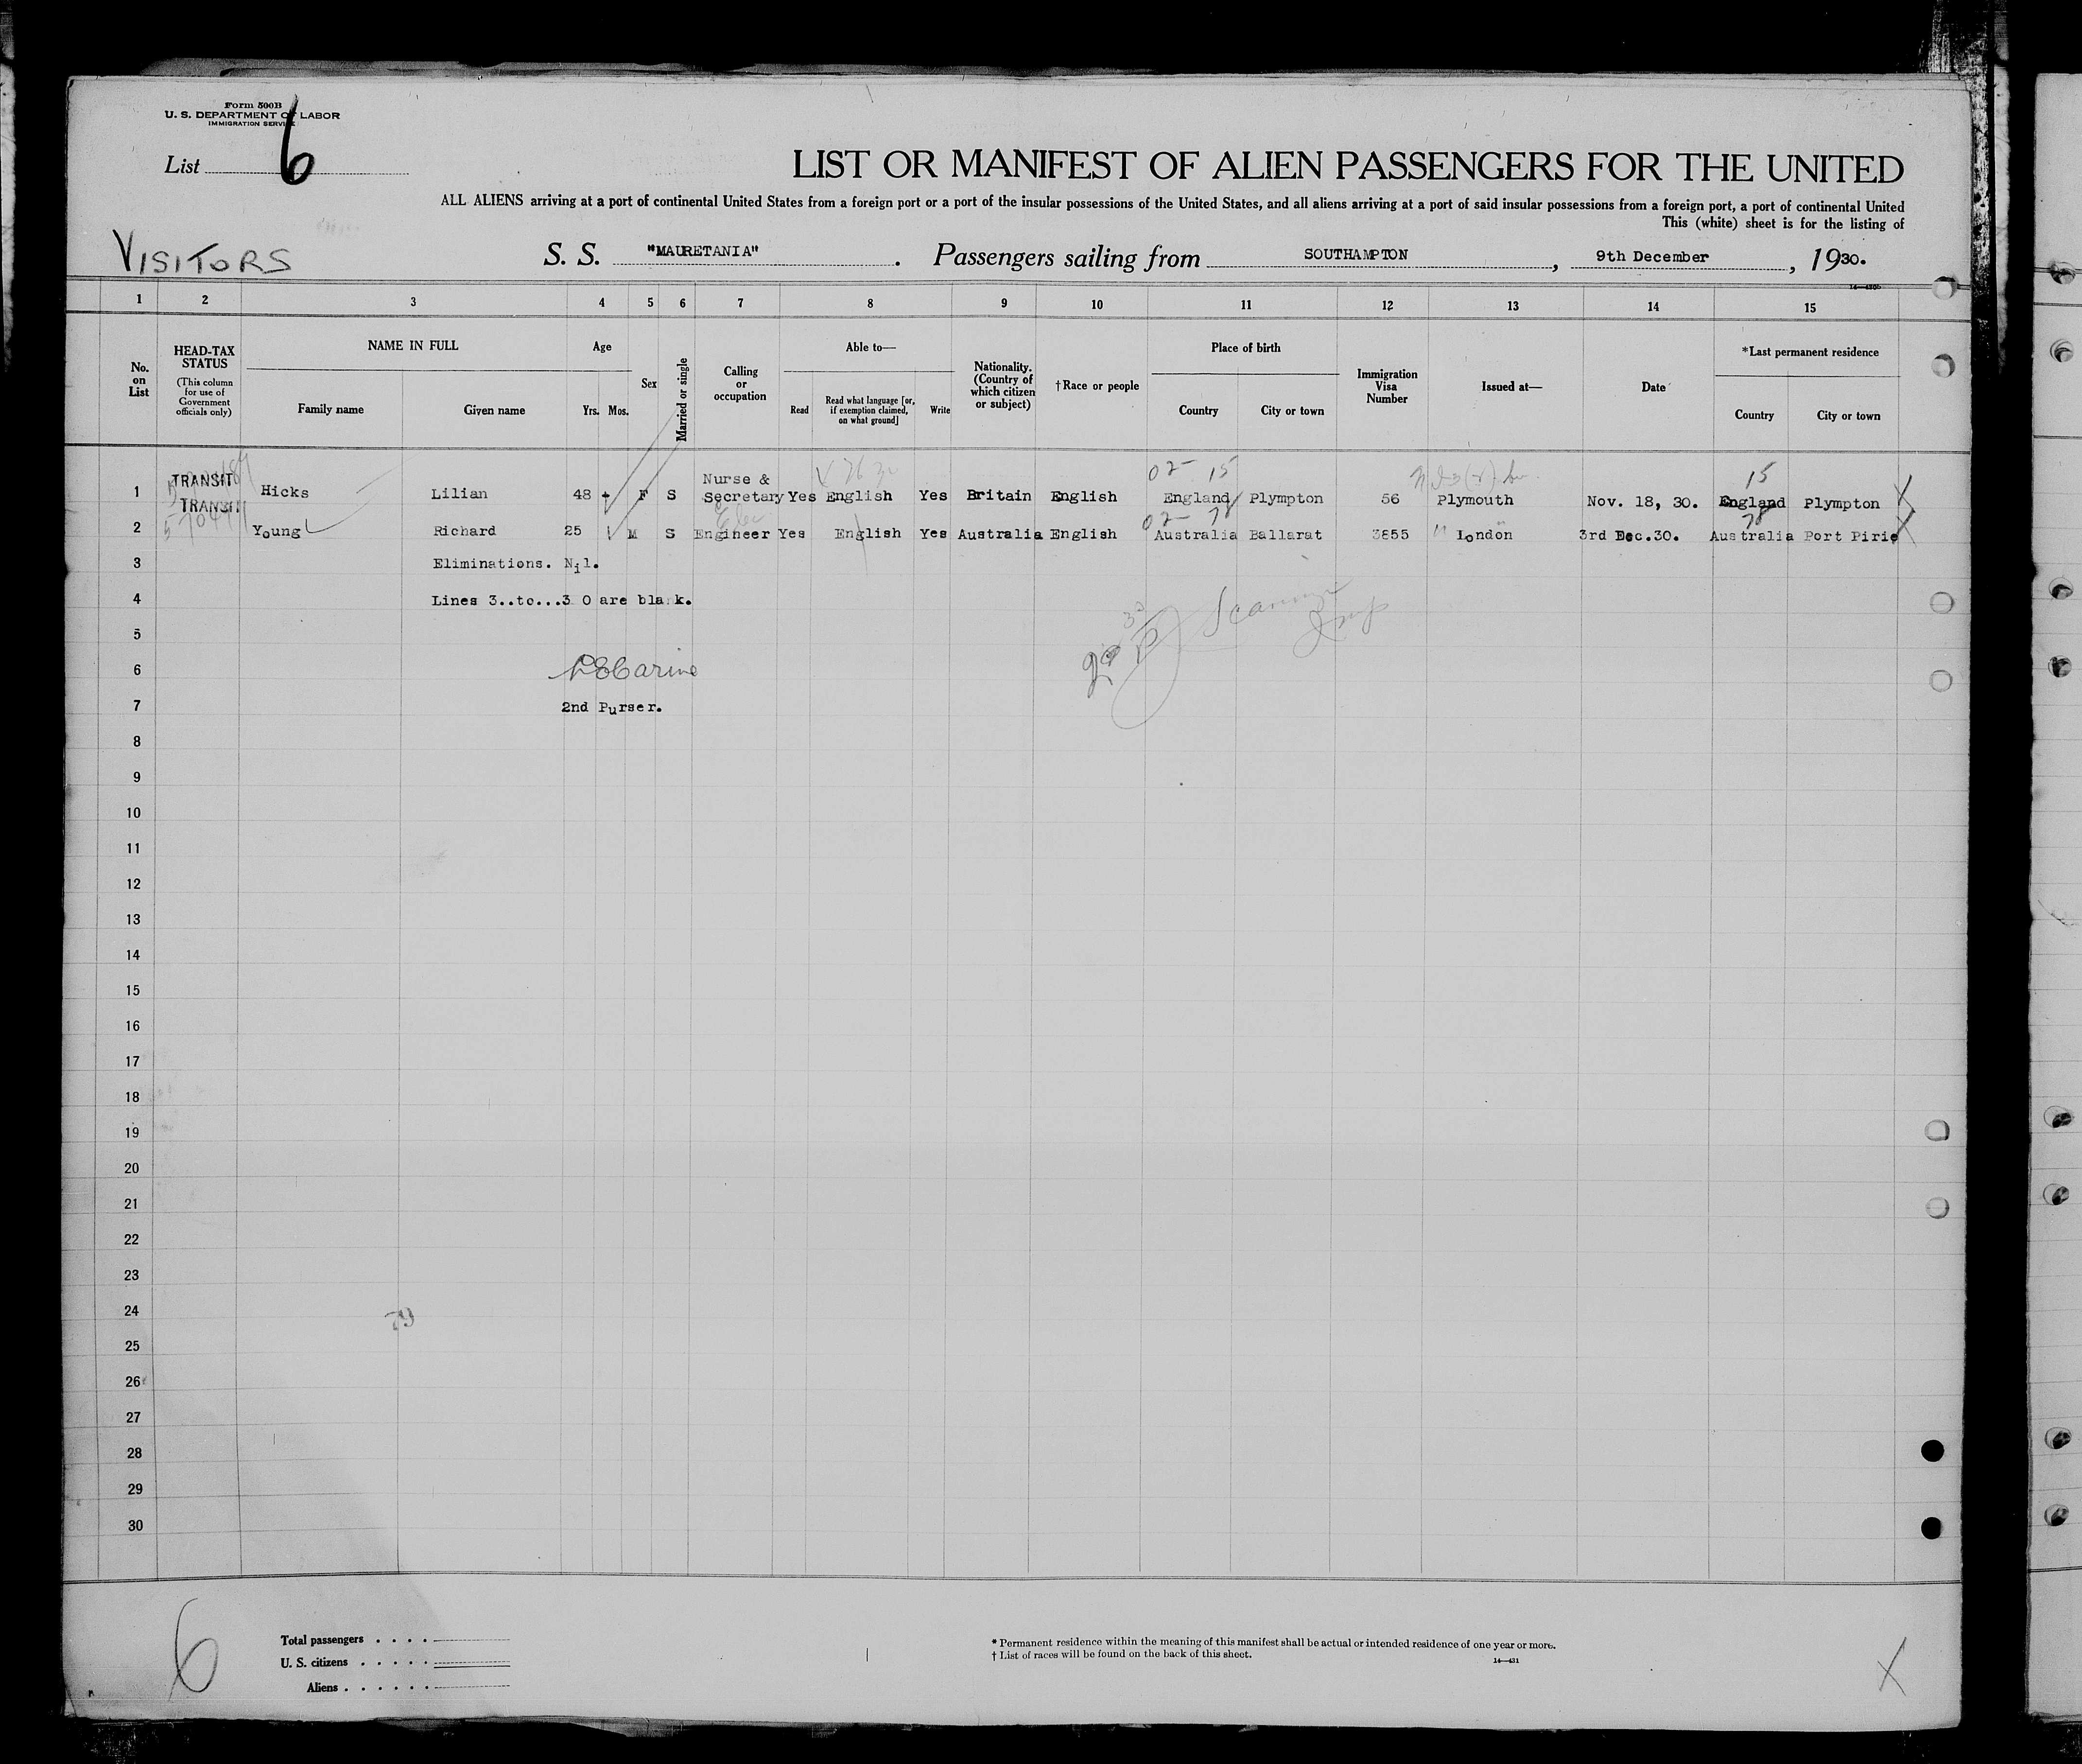 Form 500B
U. S. DEPARTMENT OF LABOR
IMMIGRATION SERVICE
List 6
LIST OR MANIFEST OF ALIEN PASSENGERS FOR THE UNITED
ALL ALIENS arriving at a port of continental United States from a foreign port or a port of the insular possessions of the United States, and all aliens arriving at a port of said insular possessions from a foreign port, a port of continental United
This (white) sheet is for the listing of
VISITORS S. S. "MAURETANIA". Passengers sailing from SOUTHAMPTON, 9th December, 1930.
1 2 3 4 5 6 7 8 9 10 11 12 13 14 15
No. on List
HEAD-TAX STATUS
(This column for use of Government officials only)
NAME IN FULL
Family name Given name
Age
Yrs. Mos.
Sex
Married or single
Calling or occupation
Able to—
Read
Read what language [or, if exemption claimed, on what ground]
Write
Nationality. (Country of which citizen or subject)
†Race or people
Place of birth
Country City or town
Immigration Visa Number
Issued at—
Date
*Last permanent residence
Country City or town
02- 15 15
1 TRANSIT Hicks Lilian 48 F S Nurse & Secretary Yes English Yes Britain English England Plympton 56 Plymouth Nov. 18, 30. England Plympton X
02- 78 78
2 TRANSIT Young Richard 25 M S Engineer Yes English Yes Australia English Australia Ballarat 3855 " London 3rd Dec.30. Australia Port Pirie X
3 Eliminations. Nil.
4 Lines 3..to...3 0 are blank.
5
6
7 2nd Purser.
8
9
10
11
12
13
14
15
16
17
18
19
20
21
22
23
24
79
25
26
27
28
29
30
6
Total passengers . . . .
U. S. citizens . . . . .
Aliens . . . . . .
* Permanent residence within the meaning of this manifest shall be actual or intended residence of one year or more.
† List of races will be found on the back of this sheet.
14—431
X